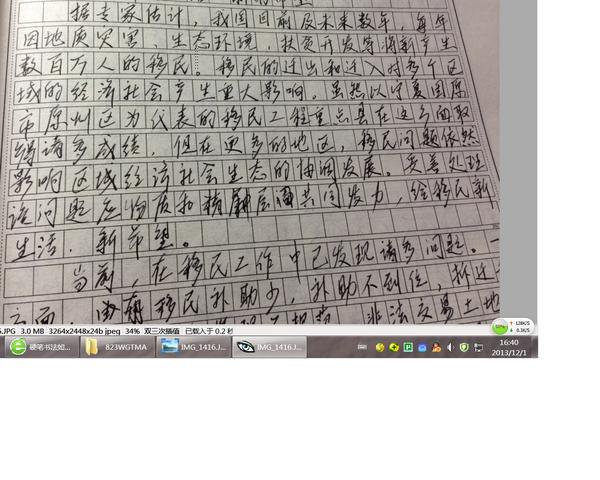 据专家估计，我国目前及未来数年，每年
因地质灾害、生态环境、扶贫开发等将新产生
数百万人的移民。移民的迁出和迁入对多个区
域的经济社会产生重大影响。虽然以宁夏固原
市原州区为代表的移民工程重点县在这方面取
得诸多成绩，但在更多的地区，移民问题依然
影响区域经济社会生态的协调发展。妥善处理
该问题应物质和精神层面共同发力，给移民新
生活、新希望。
当前，在移民工作中已发现诸多问题。一
方面，由于移民补助少，补助不到位，拆迁
非法交易土地
.JPG 3.0 MB 3264x2448x24b jpeg 34% 双三次插值 已载入于 0.2 秒
128K/S
0.3K/S
硬笔书法如...
823WGTMA
IMG_1416.J...
IMG_1416.J...
16:40
2013/12/1